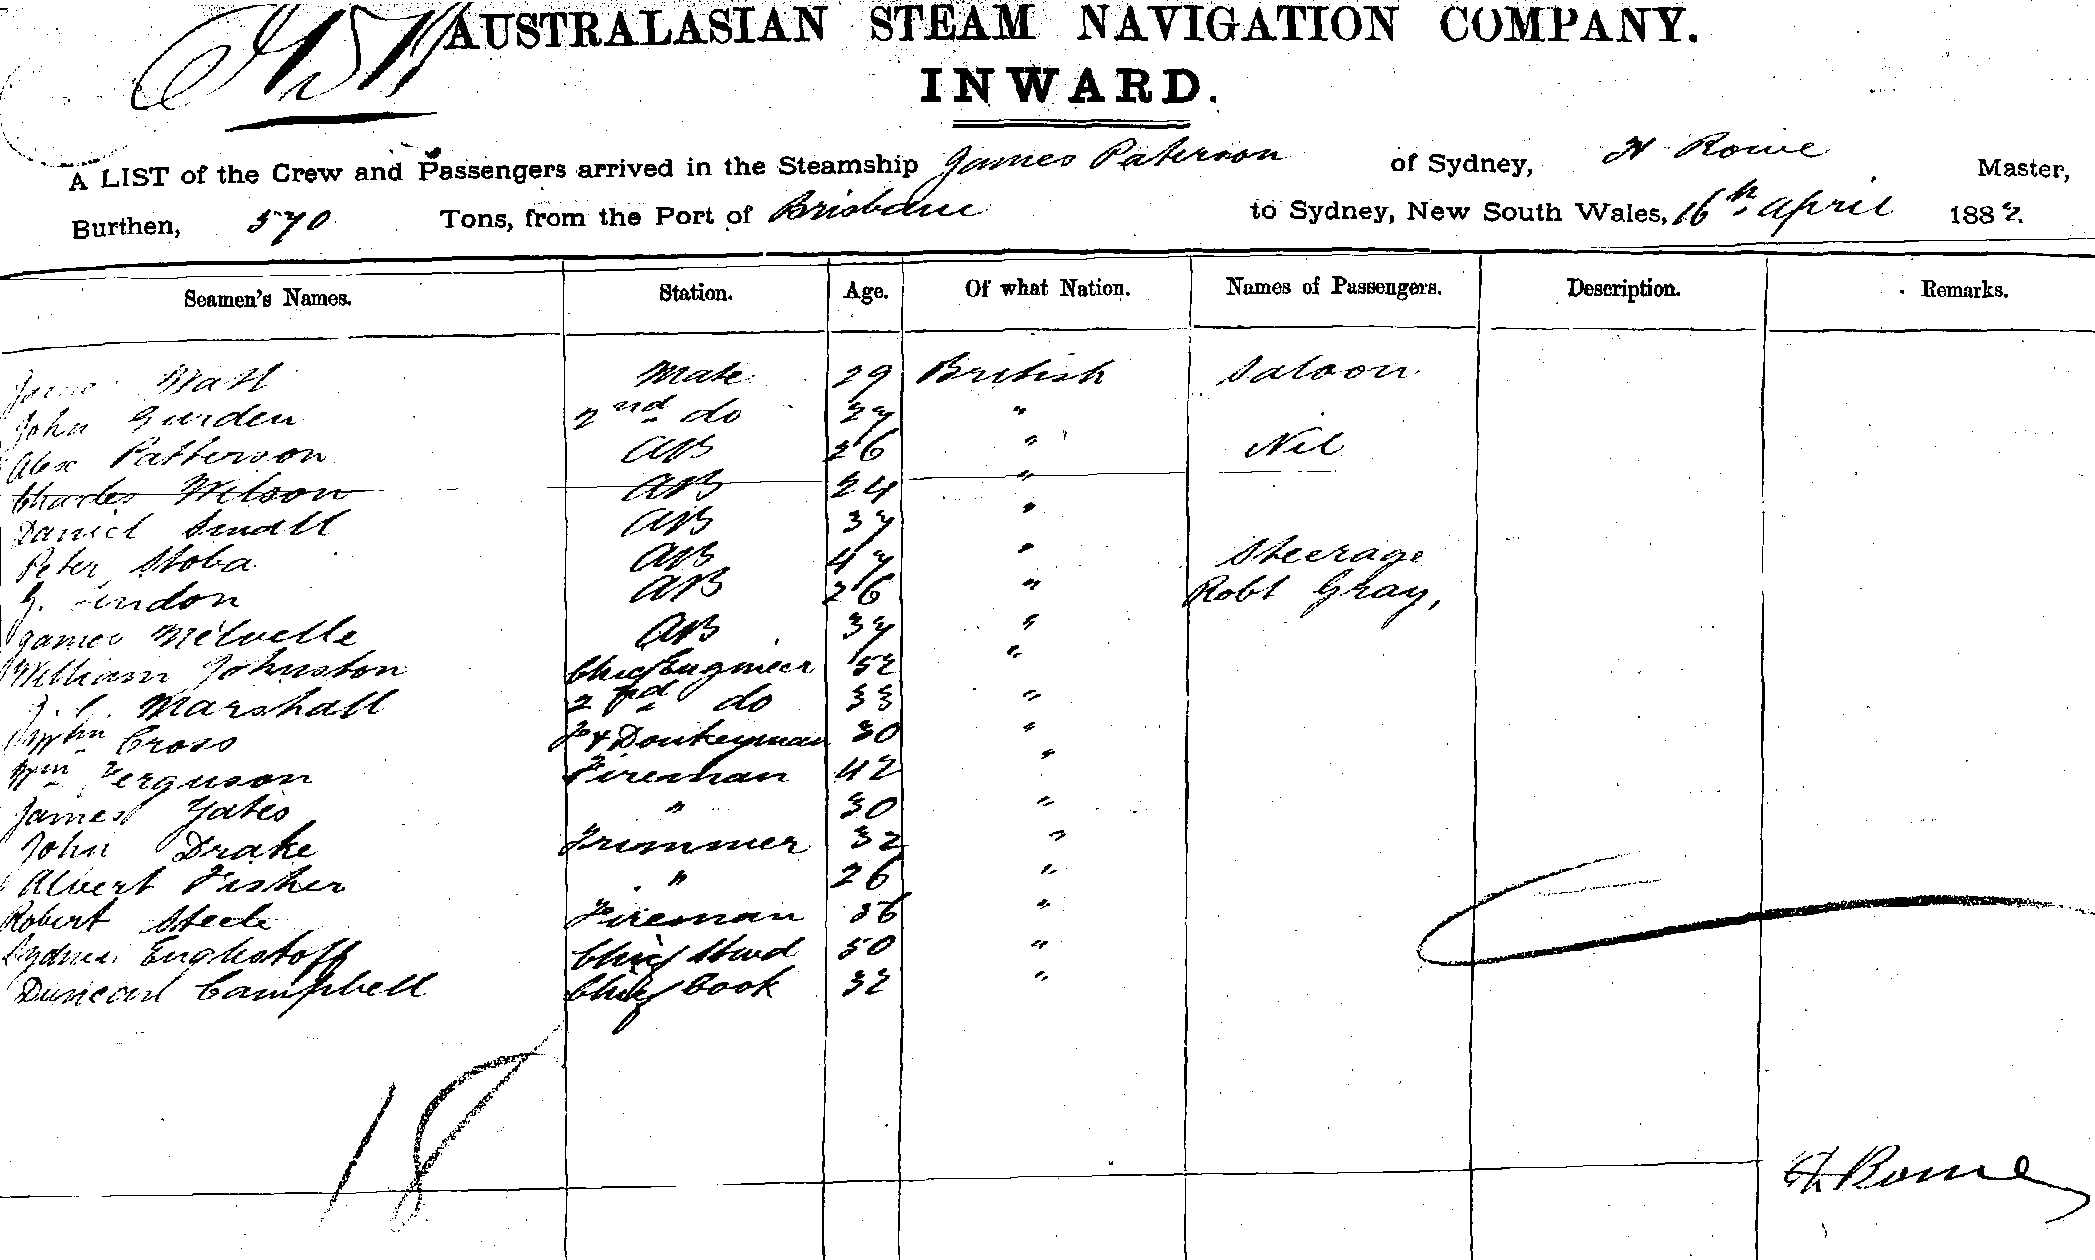 AUSTRALASIAN STEAM NAVIGATION COMPANY.
INWARD.
A LIST of the Crew and Passengers arrived in the Steamship James Paterson of Sydney, H Rowe Master,
Burthen, 570 Tons, from the Port of Brisbane to Sydney, New South Wales, 16th April 1882.
Seamen's Names. Station. Age. Of what Nation. Names of Passengers. Description. Remarks.
Mate 29 British Saloon
John Gurden 2nd do 27 "
Alex Patterson AB 26 " Nil
Charles Wilson AB 24 "
Daniel Small AB 37 "
Peter Stoba AB 47 " Steerage
AB 26 " Robt Gray,
James Melvelle AB 37 "
William Johnston Chief Engineer 52 "
Marshall 2nd do 33 "
Cross Donkeyman 30 "
Wm Ferguson Fireman 42 "
James Yates " 30 "
John Drake Trimmer 32 "
Albert Fisher " 26 "
Robert Steele Fireman 36 "
Englestoff Chief Stwd 50 "
Duncan Campbell Chief Cook 32 "
18
H Rowe